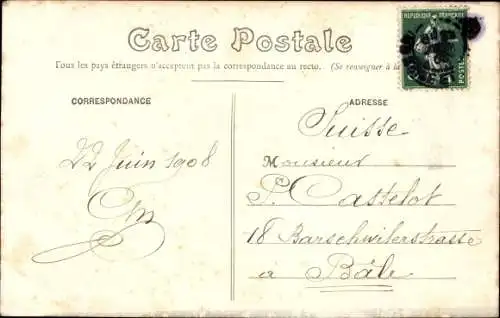 Carte Postale
Tous les pays étrangers n'acceptent pas la correspondance au recto. (Se renseigner à la
RÉPUBLIQUE FRANÇAISE
POSTES
CORRESPONDANCE
ADRESSE
22 Juin 1908
Suisse
Monsieur
P. Castelot
18 Barschwilerstrasse
à Bâle